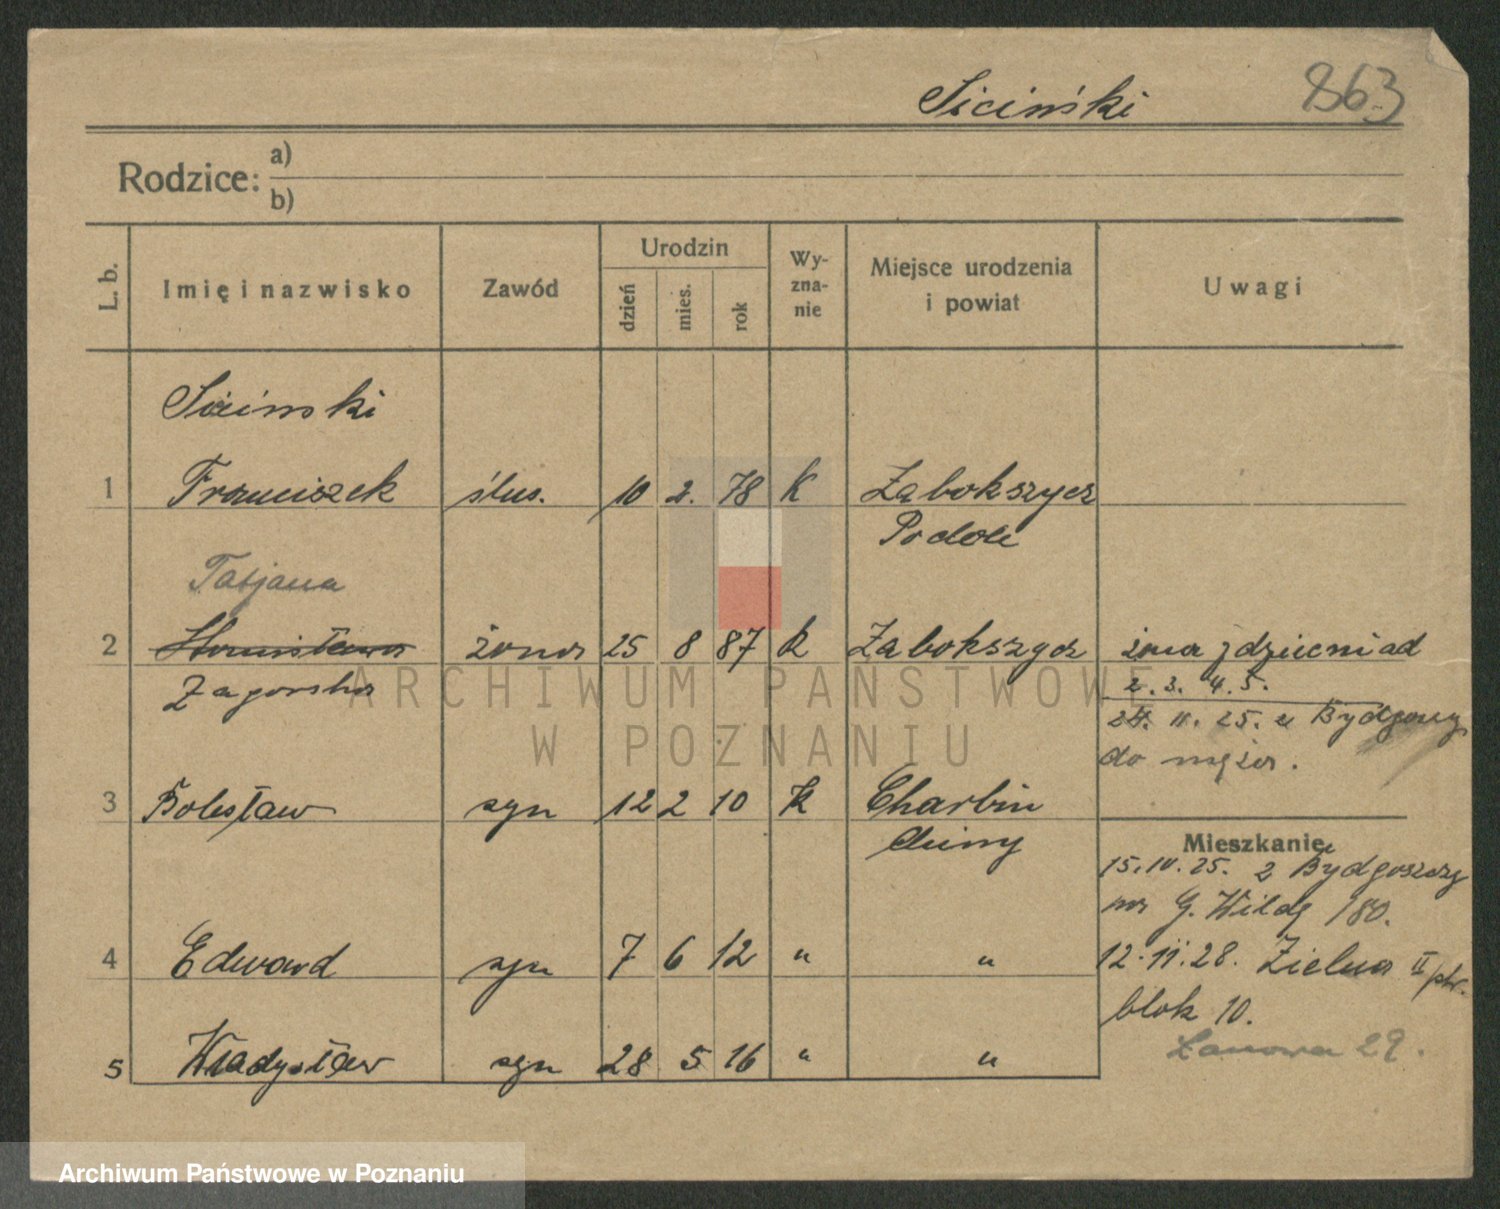 Siciński
863
Rodzice: a)
b)
L. b. Imię i nazwisko Zawód Urodzin dzień mies. rok Wy-zna-nie Miejsce urodzenia i powiat Uwagi
Siciński
1 Franciszek ślus. 10 2. 78 K Zabokszycz
Podole
Tatjana
2 Stanisława żona 25 8 87 k Zabokszycz żona i dziećmi od
Zagorska 2. 3. 4. 5.
24. 11. 25. z Bydgoszczy
do męża.
3 Bolesław syn 12 2 10 k Charbin
Chiny
Mieszkanie
15. IV. 25. z Bydgoszczy
na G. Wildę 180.
4 Edward syn 7 6 12 " " 12. 11. 28. Zielna II/ptr.
blok 10.
5 Władysław syn 28 5 16 " "
Łanowa 29.
ARCHIWUM PAŃSTWOWE
W POZNANIU
Archiwum Państwowe w Poznaniu